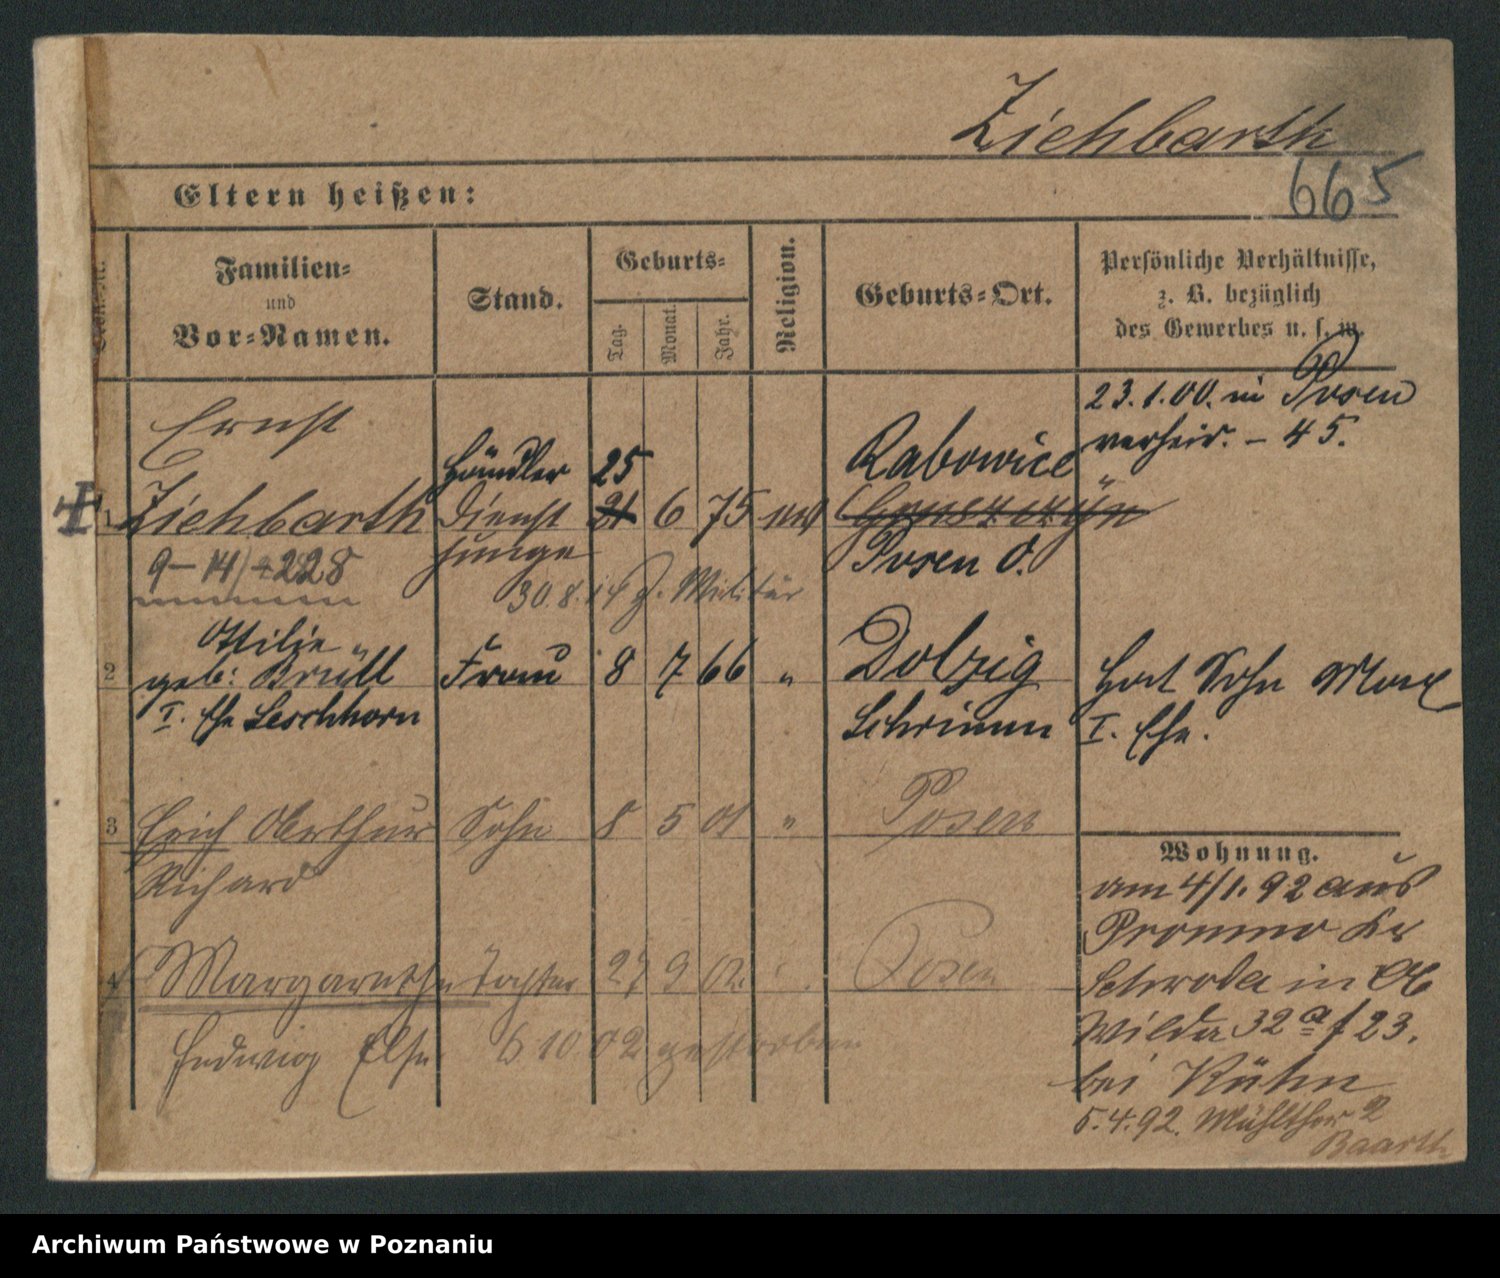 Ziehbarth
665
Eltern heißen:
Familien-
und
Vor-Namen.
Stand.
Geburts-
Tag.
Monat.
Jahr.
Religion.
Geburts-Ort.
Persönliche Verhältnisse,
z. B. bezüglich
des Gewerbes u. s. w.
23.1.00. in Posen
verheir. – 45.
Ernst
1 Ziehbarth
Händler
Dienst
junge
25
21 6 75 ev
Rabowice
Posen O.
9–14/
30.8.14 z. Militär
2 Ottilie
geb: Brüll
I. Ehe Leschhorn
Frau 8 7 66 "
Dolzig
Schrimm
Hat Sohn Max
I. Ehe.
3 Erich Arthur Sohn 8 5 01 " Posen
Richard
4 Margarethe Tochter 27 9 02. Posen
Hedwig Else 6 10 02 gestorben
Wohnung.
am 4/1. 92 aus
Pronmo Kr
Schroda in Ob
Wilda 32a f 23.
bei Kühn
5.4.92. Mühlthor 2
Baarth
Archiwum Państwowe w Poznaniu